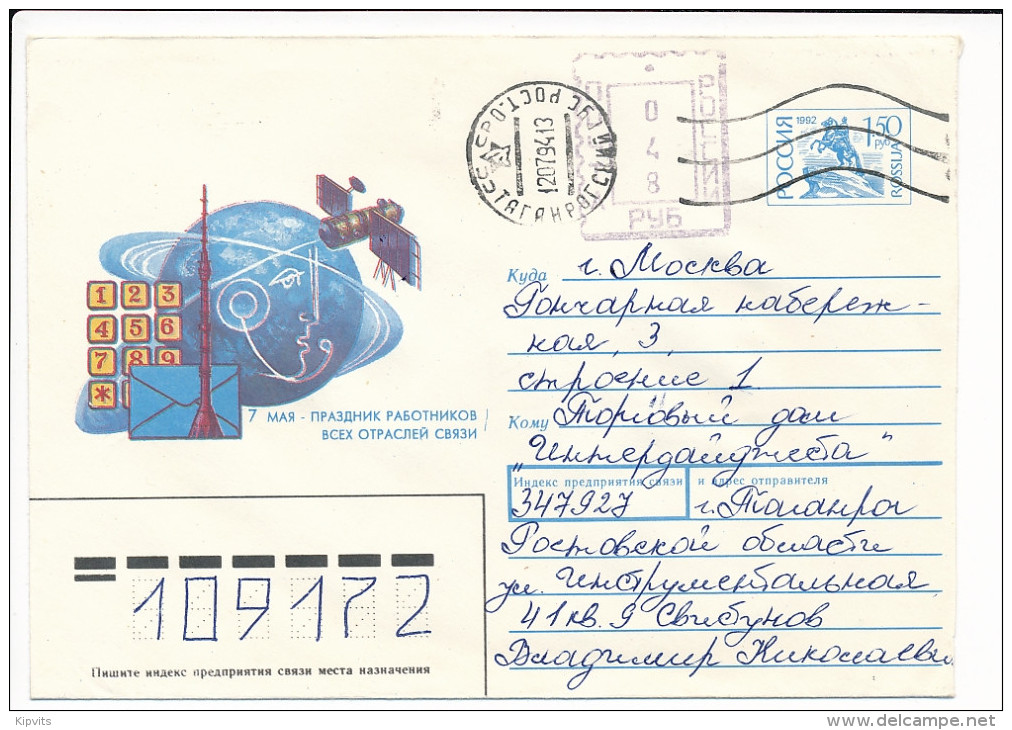 СССР РОСТ.ОБЛ
12079413
ТАГАНРОГ
РОССИИ
048
РУБ
РОССИЯ
1992
1.50
РУБ
ROSSIJA
1 2 3
4 5 6
7 8 9
*
7 МАЯ - ПРАЗДНИК РАБОТНИКОВ
ВСЕХ ОТРАСЛЕЙ СВЯЗИ
Куда г. Москва
Гончарная набереж-
ная, 3,
строение 1
Кому Торговый дом
"Интердайджеста"
Индекс предприятия связи и адрес отправителя
347927 г. Таганрог
Ростовской области
ул. Инструментальная
41 кв. 9 Свистунов
Владимир Николаевич
109172
Пишите индекс предприятия связи места назначения
Kipvits
delcampe.net